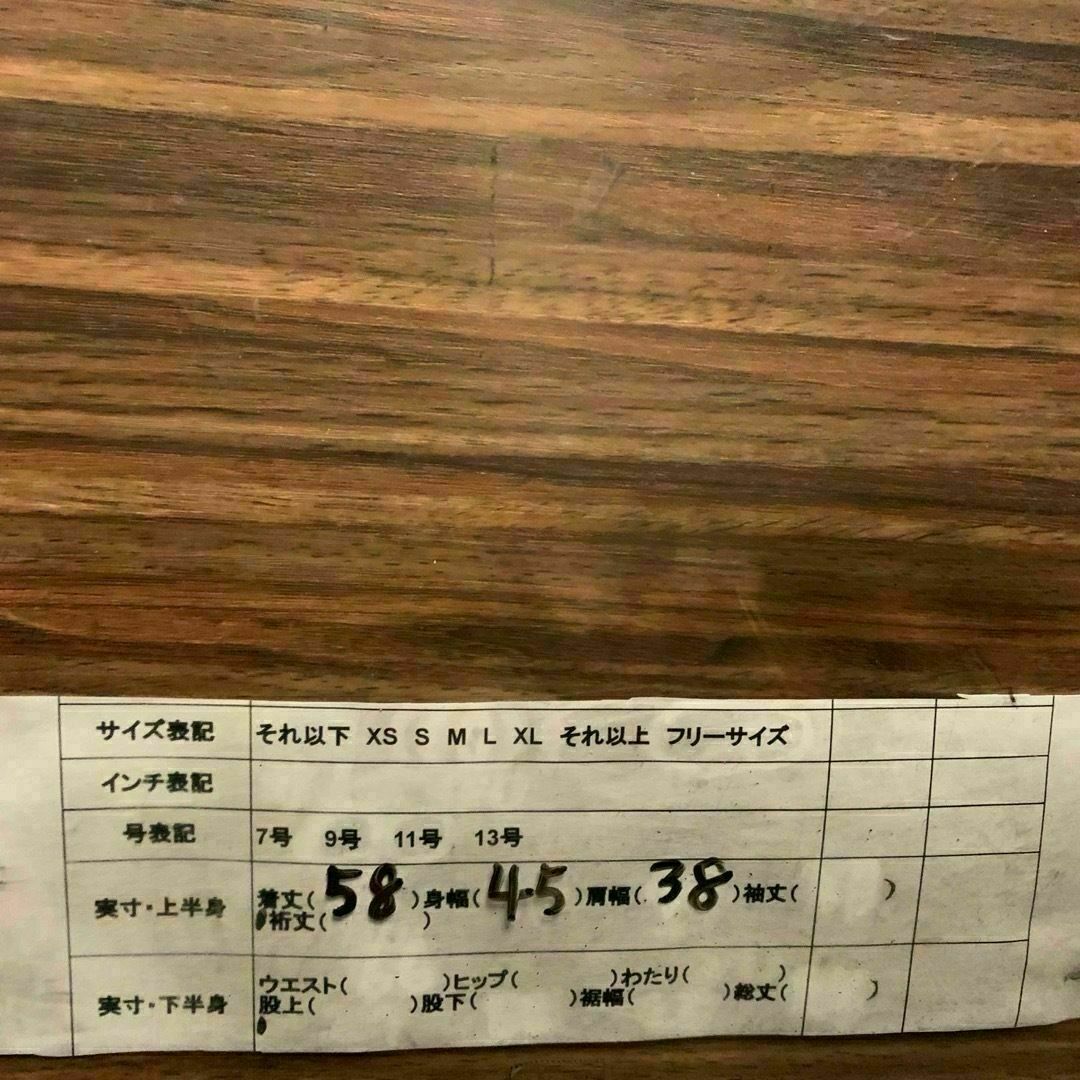 サイズ表記 それ以下 XS S M L XL それ以上 フリーサイズ
インチ表記
号表記 7号 9号 11号 13号
実寸・上半身 着丈(58)身幅(45)肩幅(38)袖丈( )
裄丈( )
実寸・下半身 ウエスト( )ヒップ( )わたり( )
股上( )股下( )裾幅( )総丈( )